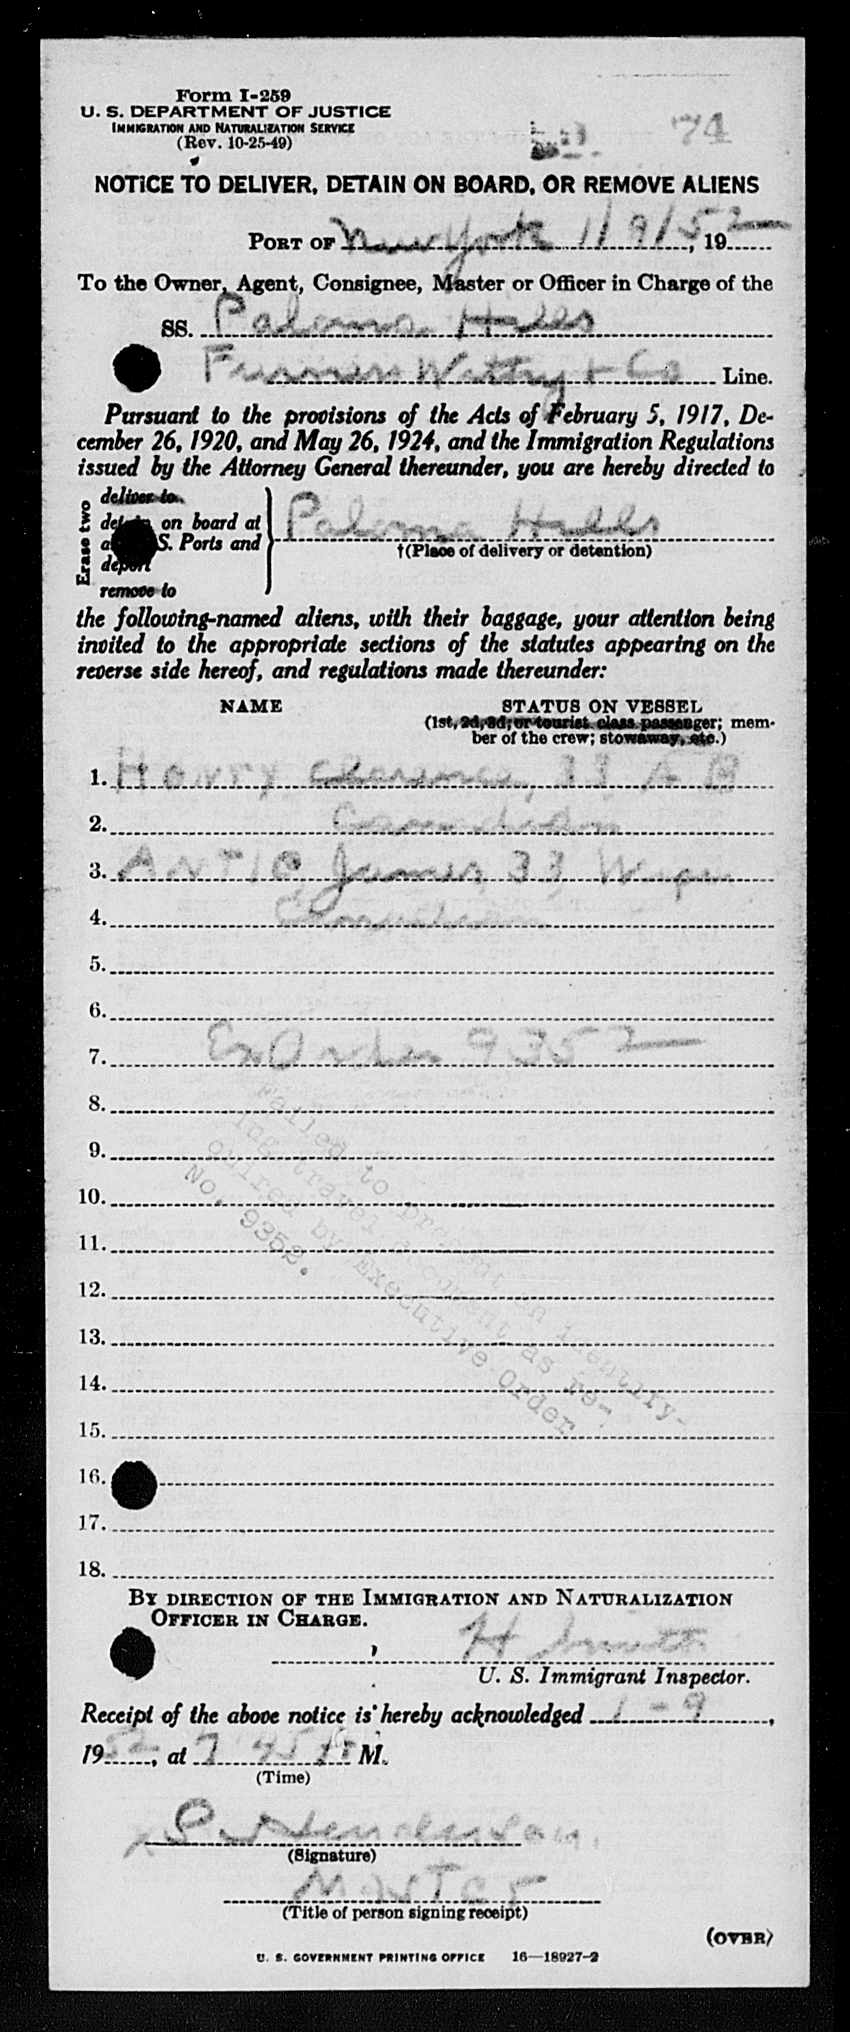 Form I-259
U. S. DEPARTMENT OF JUSTICE
IMMIGRATION AND NATURALIZATION SERVICE
(Rev. 10-25-49)
74
NOTICE TO DELIVER, DETAIN ON BOARD, OR REMOVE ALIENS
PORT OF New York 1/9/52, 19
To the Owner, Agent, Consignee, Master or Officer in Charge of the
SS. Paloma Hills
Furness Withy & Co Line.
Pursuant to the provisions of the Acts of February 5, 1917, De-
cember 26, 1920, and May 26, 1924, and the Immigration Regulations
issued by the Attorney General thereunder, you are hereby directed to
Erase two
deliver to
on board at
S. Ports and
deport
remove to
Paloma Hills
†(Place of delivery or detention)
the following-named aliens, with their baggage, your attention being
invited to the appropriate sections of the statutes appearing on the
reverse side hereof, and regulations made thereunder:
NAME
STATUS ON VESSEL
(1st, 2d, 3d, or tourist class passenger; mem-
ber of the crew; stowaway, etc.)
1. Clarence, 33 A B
2. Canadian
3. ANTIC James 33 Wiper
4. Canadian
5.
6.
7. Ex Order 9352
8.
9.
10.
11.
12.
13.
14.
15.
16.
17.
18.
Failed to present an identify-
ing travel document as re-
quired by Executive Order
No. 9352.
BY DIRECTION OF THE IMMIGRATION AND NATURALIZATION
OFFICER IN CHARGE.
H Smith
U. S. Immigrant Inspector.
Receipt of the above notice is hereby acknowledged 1-9,
1952, at 7 45 P M.
(Time)
x P Henderson.
(Signature)
Master
(Title of person signing receipt)
(OVER)
U. S. GOVERNMENT PRINTING OFFICE 16—18927-2